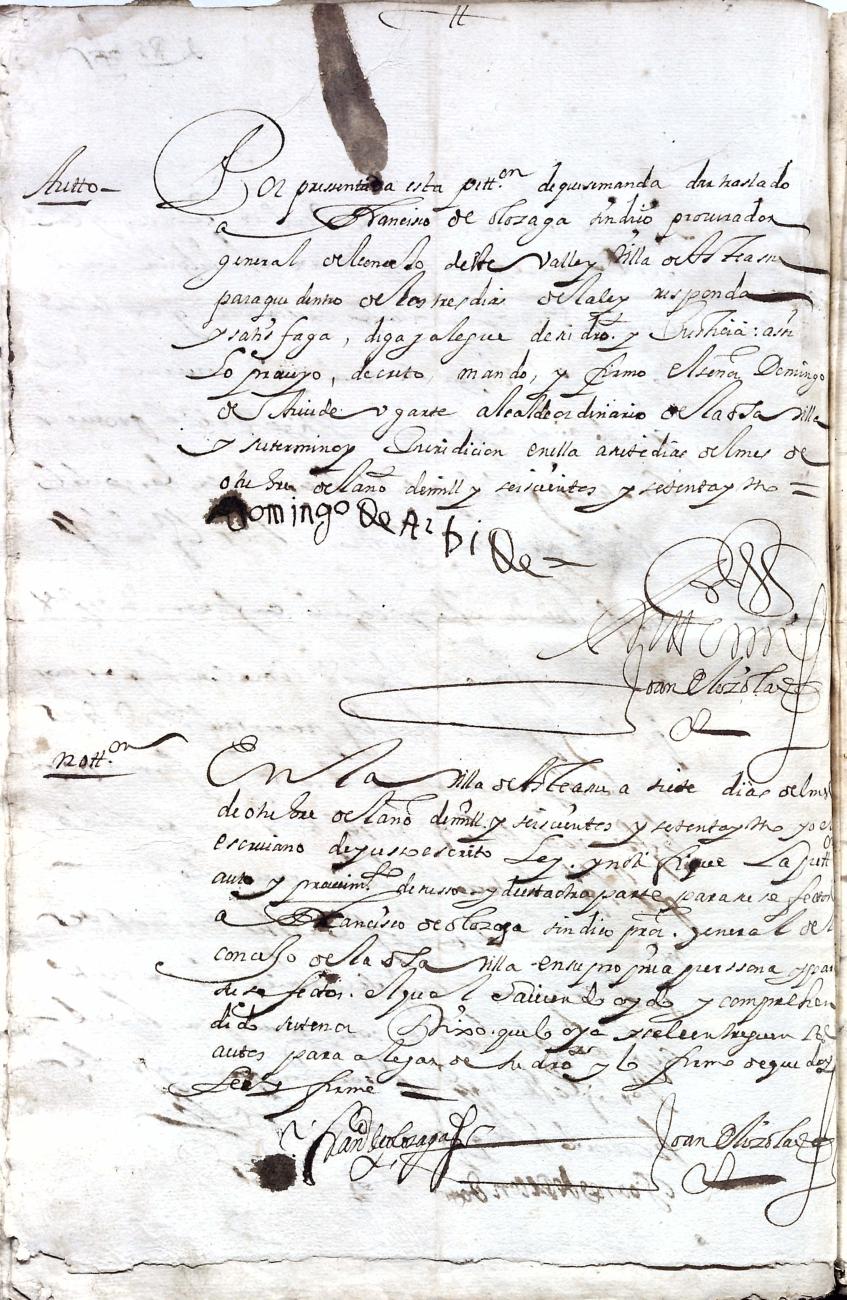 Autto
Por presentada esta pitton de que se manda dar traslado
a Francisco de Olozaga sindico procurador
general del concejo deste valle y villa de Asteasu
para que dentro de los tres dias de la ley responda
y satisfaga, diga y alegue de su dro. y Justicia: assi
lo proueyo, decreto, mando, y firmo el señor Domingo
de Arvide Ugarte alcalde ordinario de la dha villa
y su termino y Juridicion en ella a siete dias del mes de
otubre del año de mill y seiscientos y setenta y
Domingo de Arbide
Ante mi
Joan Elozola
notton
En la villa de Asteasu a siete dias del mes
de otubre del año de mill y seiscientos y setenta y yo el
escriuano de yuso escrito Ley. y notifique La pitt
auto y proueimto de suso y desta otra parte para su efecto
a Francisco de Olozaga sindico pror. general del
concejo de la dha villa en su propria perssona
efectos. el qual hauiendo oydo y comprehen
dido su tenor Dixo que lo oya y se le entreguen los
autos para alegar de su dro y lo firmo de que doy
fee y firme
Franco de Olozaga
Joan Elozola